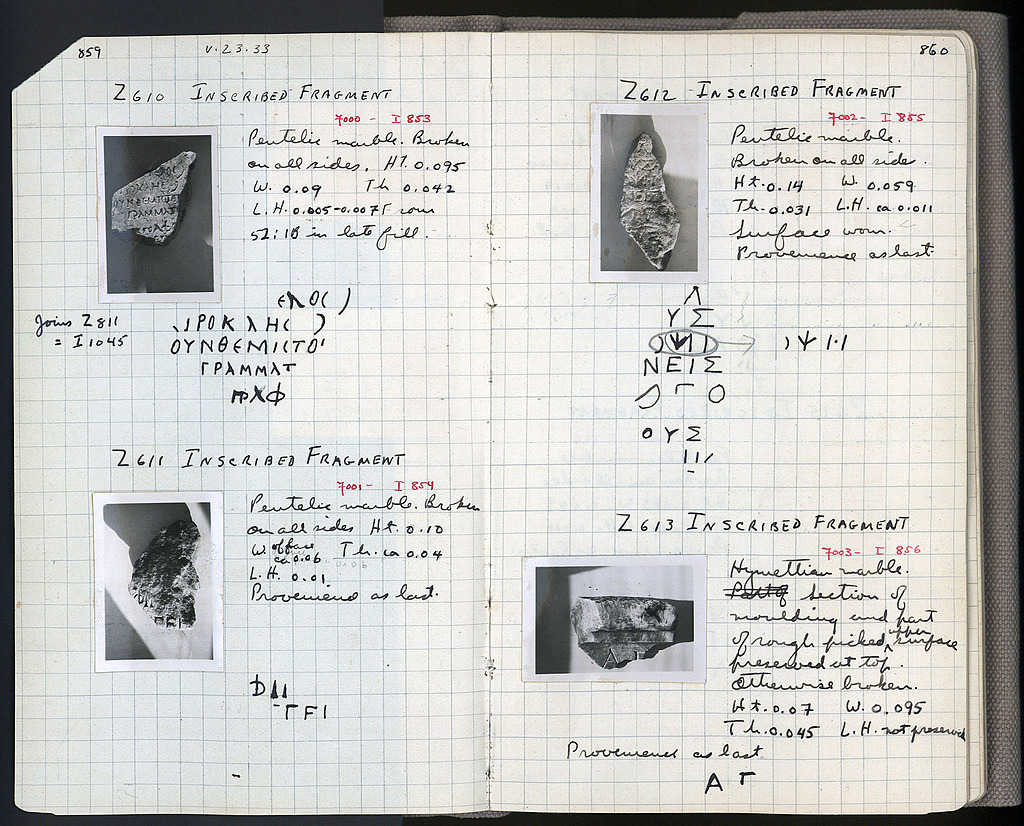 859
V.23.33
Z610 INSCRIBED FRAGMENT
7000 - I 853
Pentelic marble. Broken
on all sides. Ht. 0.095
W. 0.09 Th 0.042
L.H. 0.005-0.007 From
in late fill.
Joins Z811
= I 1045
ΡΟΚΛΗC )
ΟΥΝΘΕΜΙCΤΟ
ΓΡΑΜΜΑΤ
Z611 INSCRIBED FRAGMENT
7001 - I 854
Pentelic marble. Broken
on all sides Ht. 0.10
W. of face ca 0.06 Th. ca 0.04
L.H. 0.01
Provenience as last.
ΓFI
860
Z612 INSCRIBED FRAGMENT
7002 - I 855
Pentelic marble.
Broken on all sides.
Ht. 0.14 W. 0.059
Th. 0.031 L.H. ca 0.011
Surface worn.
Provenience as last.
Λ
ΥΣ
ΝΕΙΣ
ΟΥΣ
Z613 INSCRIBED FRAGMENT
7003 - I 856
Hymettian marble.
Part of section of
moulding and part
of rough picked upper surface
preserved at top.
Otherwise broken.
Ht. 0.07 W. 0.095
Th. 0.045 L.H. not preserved
Provenience as last
Α Γ